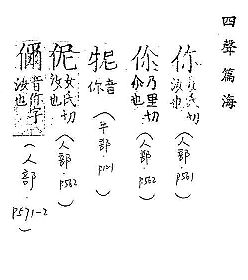 四聲篇海
你 汝也（人部.p561）
伱 乃里切 尒也（人部.p562）
音你（牛部.p121）
伲 女氏切 汝也（人部.p562）
儞 音你字 汝也（人部.p571-2）